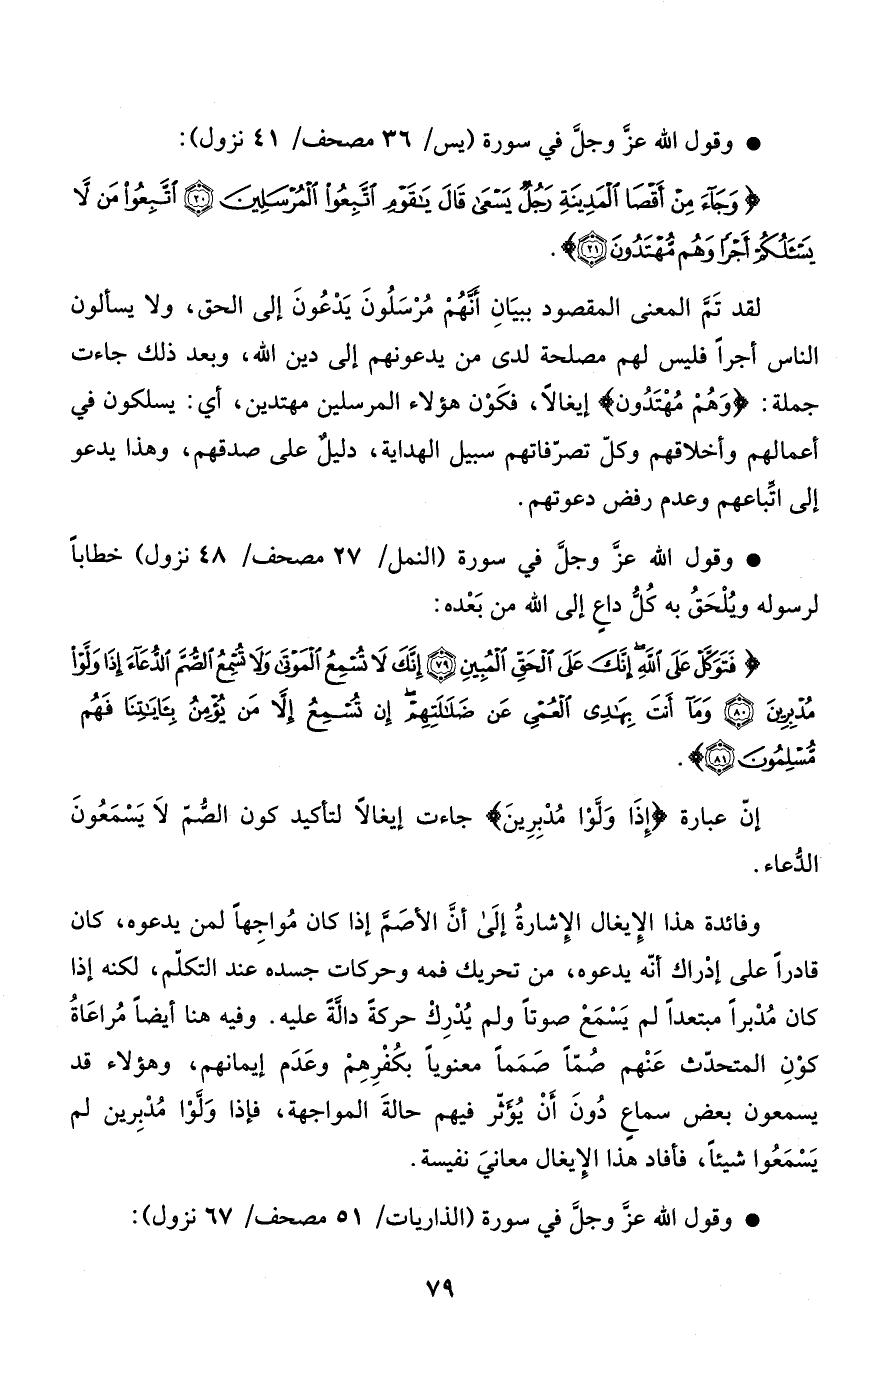 ● وقول الله عزَّ وجلَّ في سورة (يس/ ٣٦ مصحف/ ٤١ نزول):
﴿وَجَآءَ مِنْ أَقْصَا ٱلْمَدِينَةِ رَجُلٌ يَسْعَىٰ قَالَ يَـٰقَوْمِ ٱتَّبِعُوا۟ ٱلْمُرْسَلِينَ ﴿٢٠﴾ ٱتَّبِعُوا۟ مَن لَّا
يَسْـَٔلُكُمْ أَجْرًا وَهُم مُّهْتَدُونَ ﴿٢١﴾﴾.
لقد تَمَّ المعنى المقصود ببيَانِ أَنَّهُمْ مُرْسَلُونَ يَدْعُونَ إلى الحق، ولا يسألون
الناس أجراً فليس لهم مصلحة لدى من يدعونهم إلى دين الله، وبعد ذلك جاءت
جملة: ﴿وَهُمْ مُهْتَدُون﴾ إيغالاً، فكَوْن هؤلاء المرسلين مهتدين، أي: يسلكون في
أعمالهم وأخلاقهم وكلّ تصرّفاتهم سبيل الهداية، دليلٌ على صدقهم، وهذا يدعو
إلى اتِّباعهم وعدم رفض دعوتهم.
● وقول الله عزَّ وجلَّ في سورة (النمل/ ٢٧ مصحف/ ٤٨ نزول) خطاباً
لرسوله ويُلْحَقُ به كُلُّ داعٍ إلى الله من بَعْده:
﴿فَتَوَكَّلْ عَلَى ٱللَّهِ ۖ إِنَّكَ عَلَى ٱلْحَقِّ ٱلْمُبِينِ ﴿٧٩﴾ إِنَّكَ لَا تُسْمِعُ ٱلْمَوْتَىٰ وَلَا تُسْمِعُ ٱلصُّمَّ ٱلدُّعَآءَ إِذَا وَلَّوْا۟
مُدْبِرِينَ ﴿٨٠﴾ وَمَآ أَنتَ بِهَـٰدِى ٱلْعُمْىِ عَن ضَلَـٰلَتِهِمْ ۖ إِن تُسْمِعُ إِلَّا مَن يُؤْمِنُ بِـَٔايَـٰتِنَا فَهُم
مُّسْلِمُونَ ﴿٨١﴾﴾.
إنّ عبارة ﴿إِذَا وَلَّوْا مُدْبِرِينَ﴾ جاءت إيغالاً لتأكيد كون الصُّمّ لاَ يَسْمَعُونَ
الدُّعاء.
وفائدة هذا الإِيغال الإِشارةُ إلَىٰ أنَّ الأصَمَّ إذا كان مُواجِهاً لمن يدعوه، كان
قادراً على إدْراك أنّه يدعوه، من تحريك فمه وحركات جسده عند التكلّم، لكنه إذا
كان مُدْبراً مبتعداً لم يَسْمَعْ صوتاً ولم يُدْرِكْ حركةً دالَّةً عليه. وفيه هنا أيضاً مُراعَاةُ
كوْنِ المتحدّث عَنْهم صُمّاً صَمَماً معنوياً بكُفْرِهِمْ وعَدَم إيمانهم، وهؤلاء قد
يسمعون بعض سماعٍ دُونَ أَنْ يُؤَثّر فيهم حالةَ المواجهة، فإذا وَلَّوْا مُدْبِرين لم
يَسْمَعُوا شيئاً، فأفاد هذا الإِيغال معانيَ نفيسة.
● وقول الله عزَّ وجلَّ في سورة (الذاريات/ ٥١ مصحف/ ٦٧ نزول):
٧٩